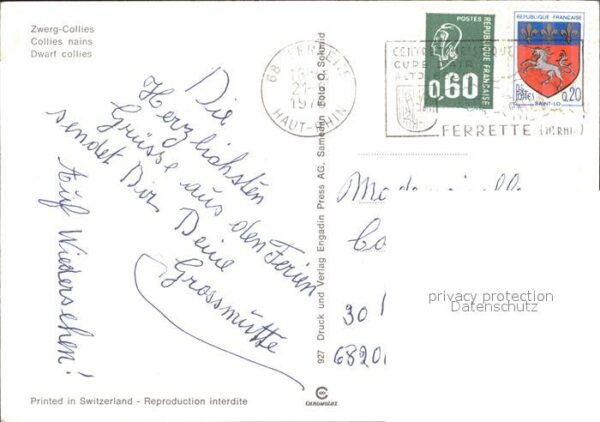 Zwerg-Collies
Collies nains
Dwarf collies
Die
Herzlichsten
Grüsse aus den Ferien
sendet Dir Deine
Grossmütte
Auf Wiedersehen!
Printed in Switzerland - Reproduction interdite
927 Druck und Verlag Engadin Press AG, Samedan Foto O. Schmid
68 FERRETTE
HAUT-RHIN
CENTRE
CURE D'AIR
FERRETTE (HT RHIN)
POSTES
0,60
REPUBLIQUE FRANÇAISE
REPUBLIQUE FRANÇAISE
POSTES
0,20
SAINT-LO
Mademoiselle
30
6820
privacy protection
Datenschutz